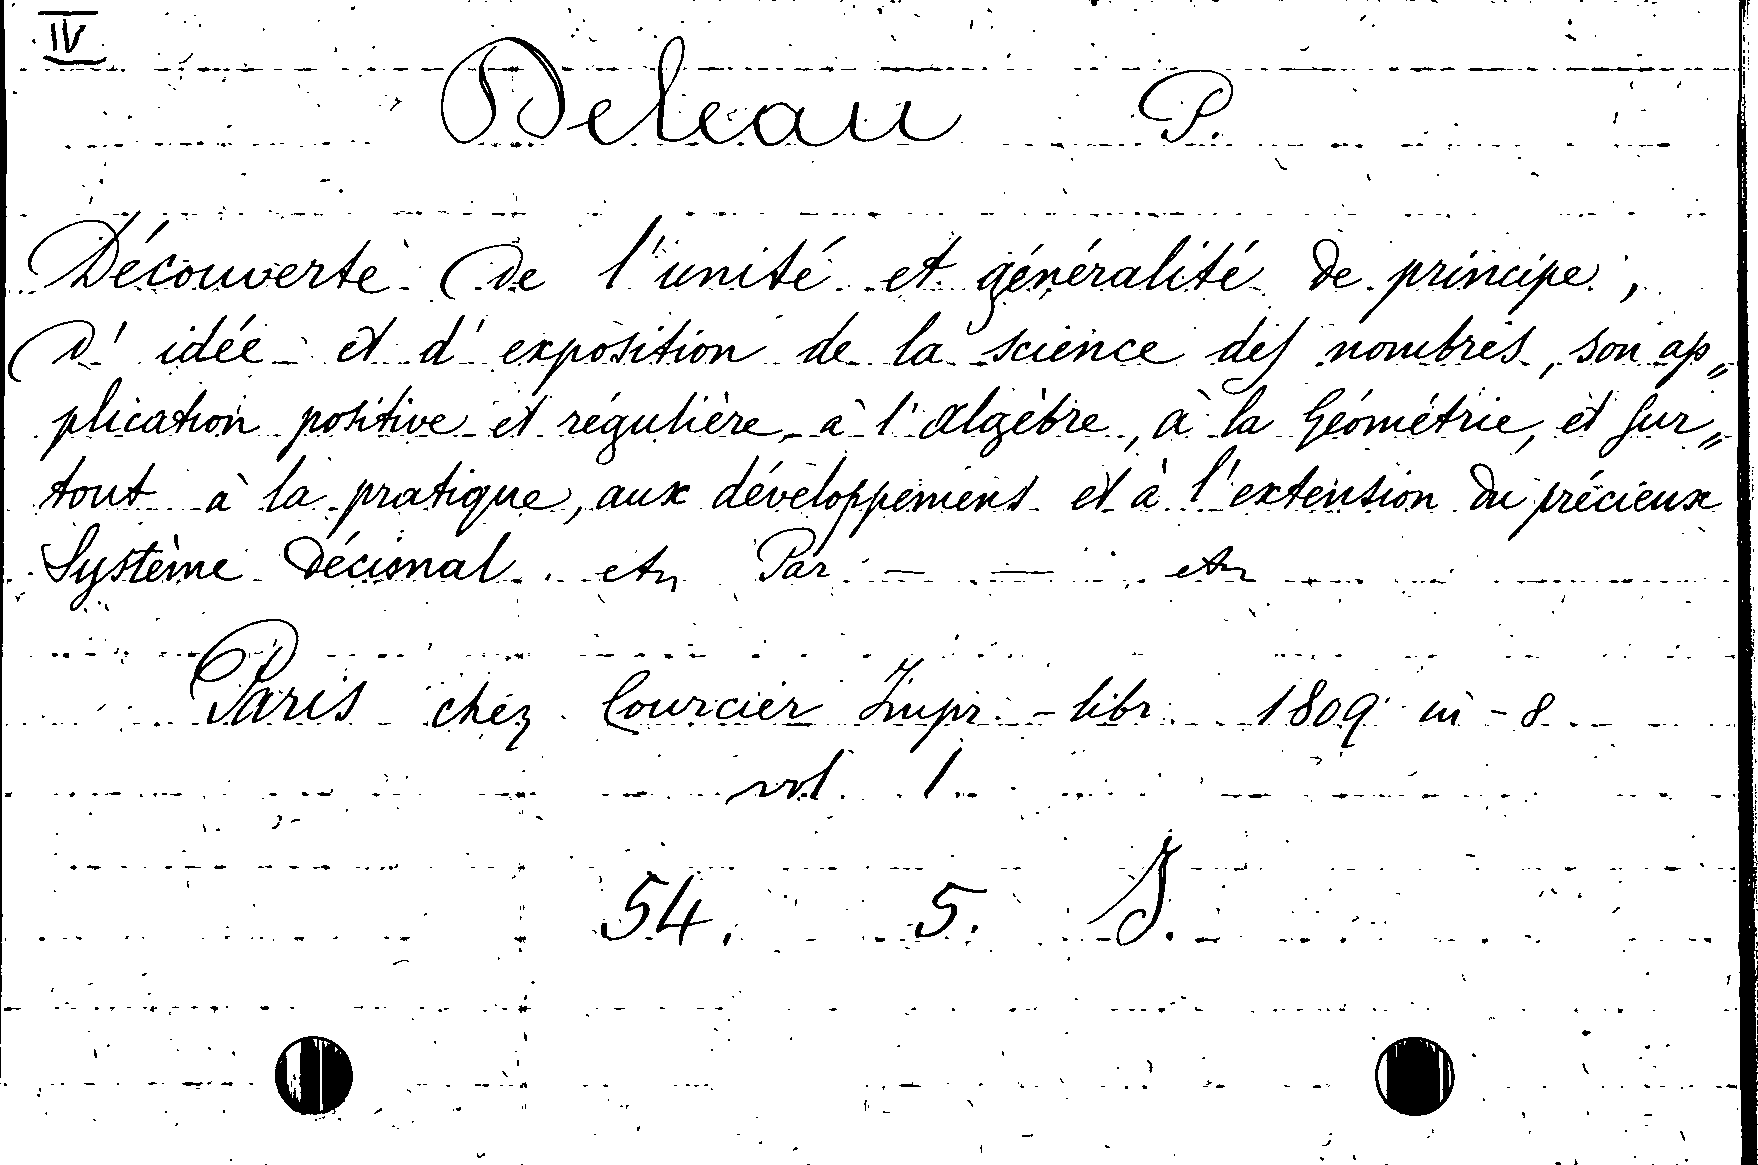 IV
Deleau P.
Découverte de l'unité et généralité de principe,
d'idée et d'exposition de la science des nombres, son ap„
plication positive et régulière, à l'algèbre, à la Géométrie, et sur„
tout à la pratique, aux développemens et à l'extension du précieux
Système Décimal. etc, Par — — etc
Paris chez Courcier Impr. - libr. 1809 in - 8.
vol. 1.
54. 5. J.